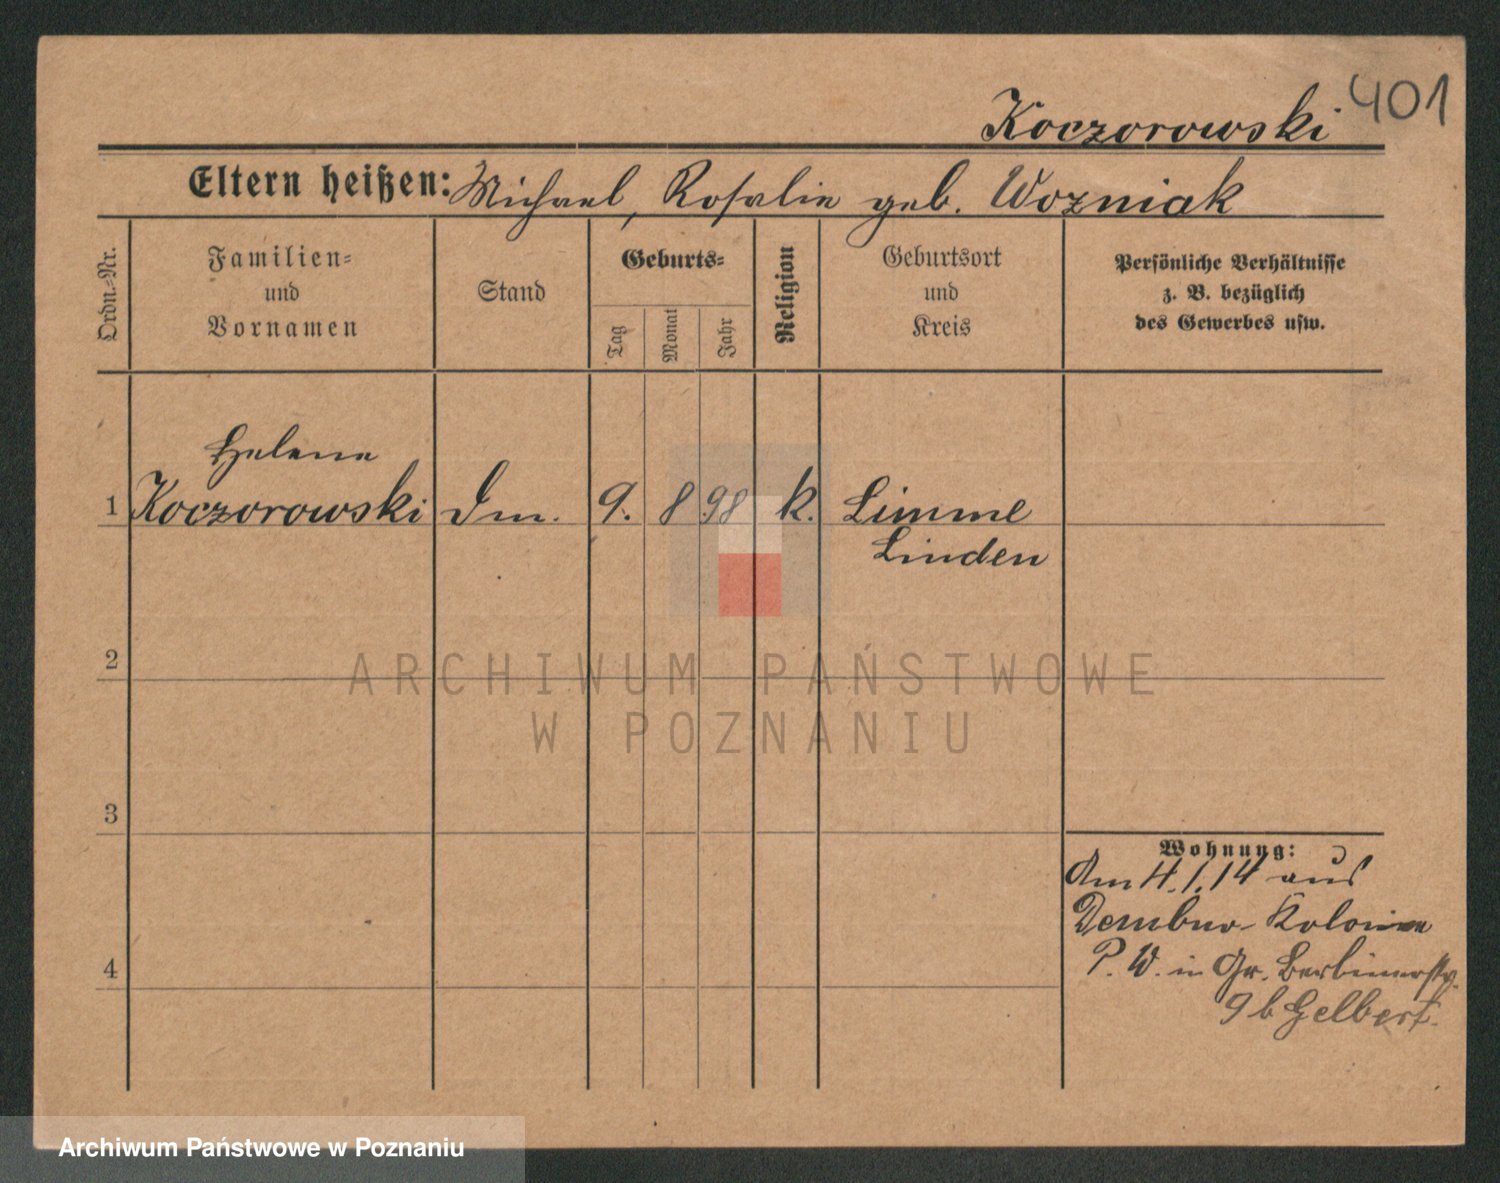 Koczorowski 401
Eltern heißen: Michael, Rosalie geb. Wozniak
Ordn.-Nr.
Familien-
und
Vornamen
Stand
Geburts-
Tag
Monat
Jahr
Religion
Geburtsort
und
Kreis
Persönliche Verhältnisse
z. B. bezüglich
des Gewerbes usw.
Helene
1 Koczorowski 9. 8 98 k. Limme
Linden
2
ARCHIWUM PAŃSTWOWE
W POZNANIU
3
Wohnung:
Am 4.1.14 aus
Kolonie
4 P. W. in Gr. Berlinerstr.
9 b Gelbert.
Archiwum Państwowe w Poznaniu